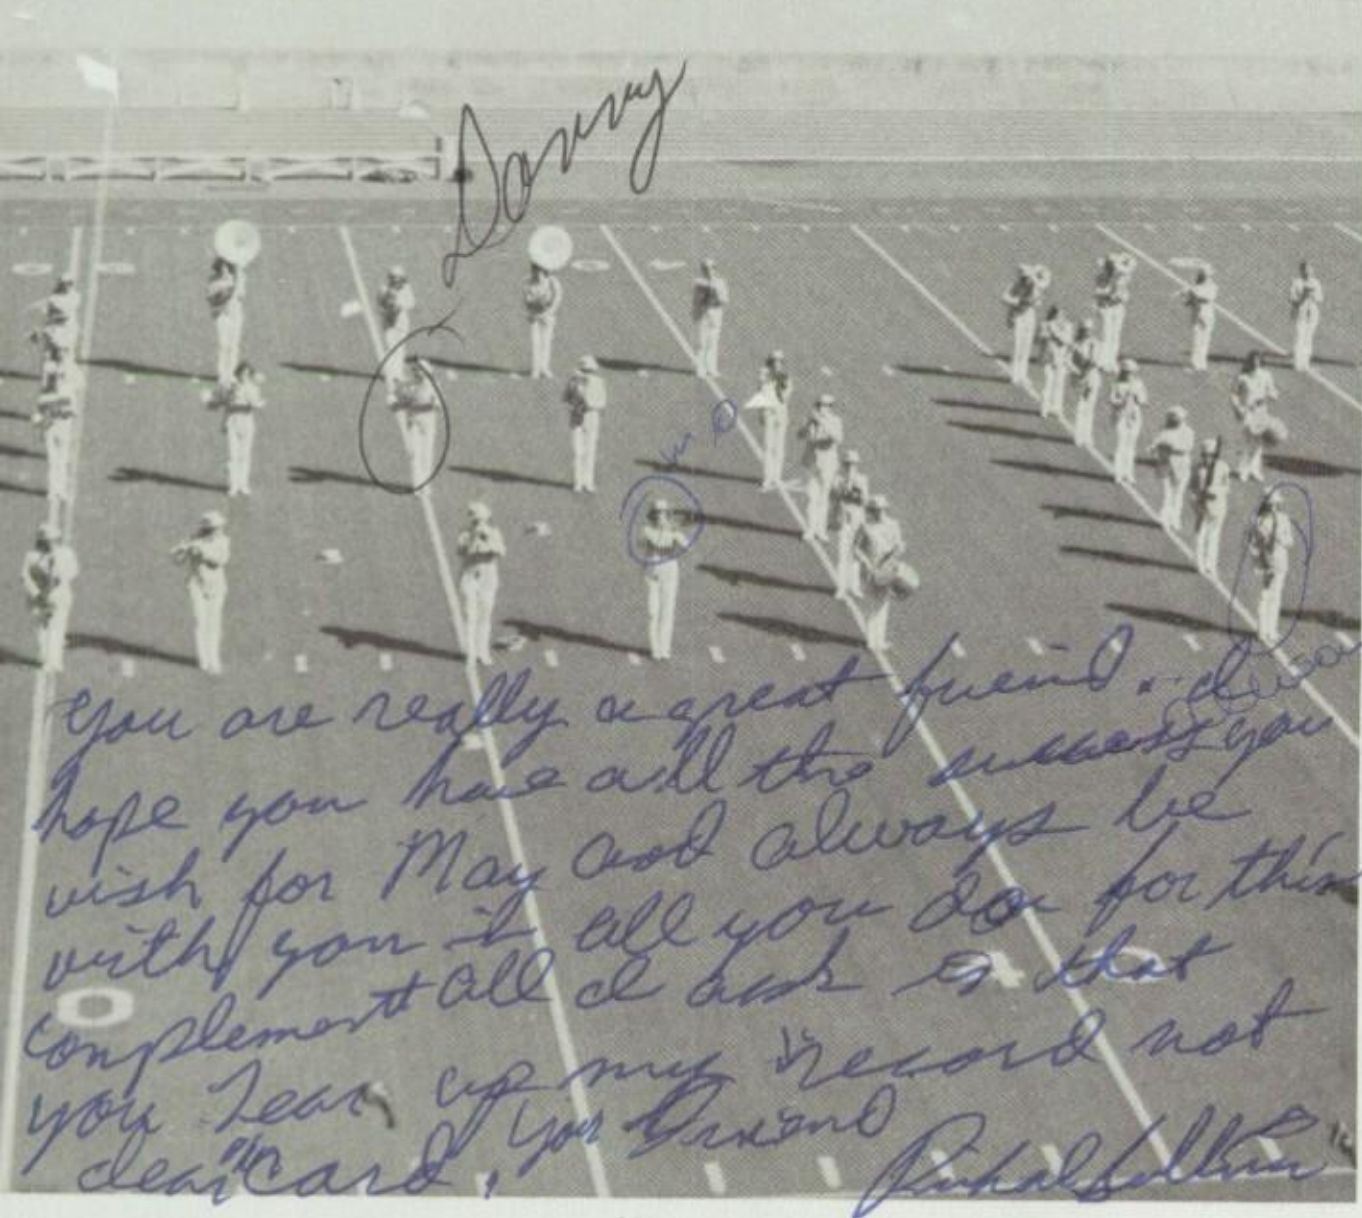 Donny
me
you are really a great friend. I
hope you have all the success you
wish for May and always be
with you in all you do for this
complement all I ask is that
you Tear up my record not
"my" card. your Friend
0
40